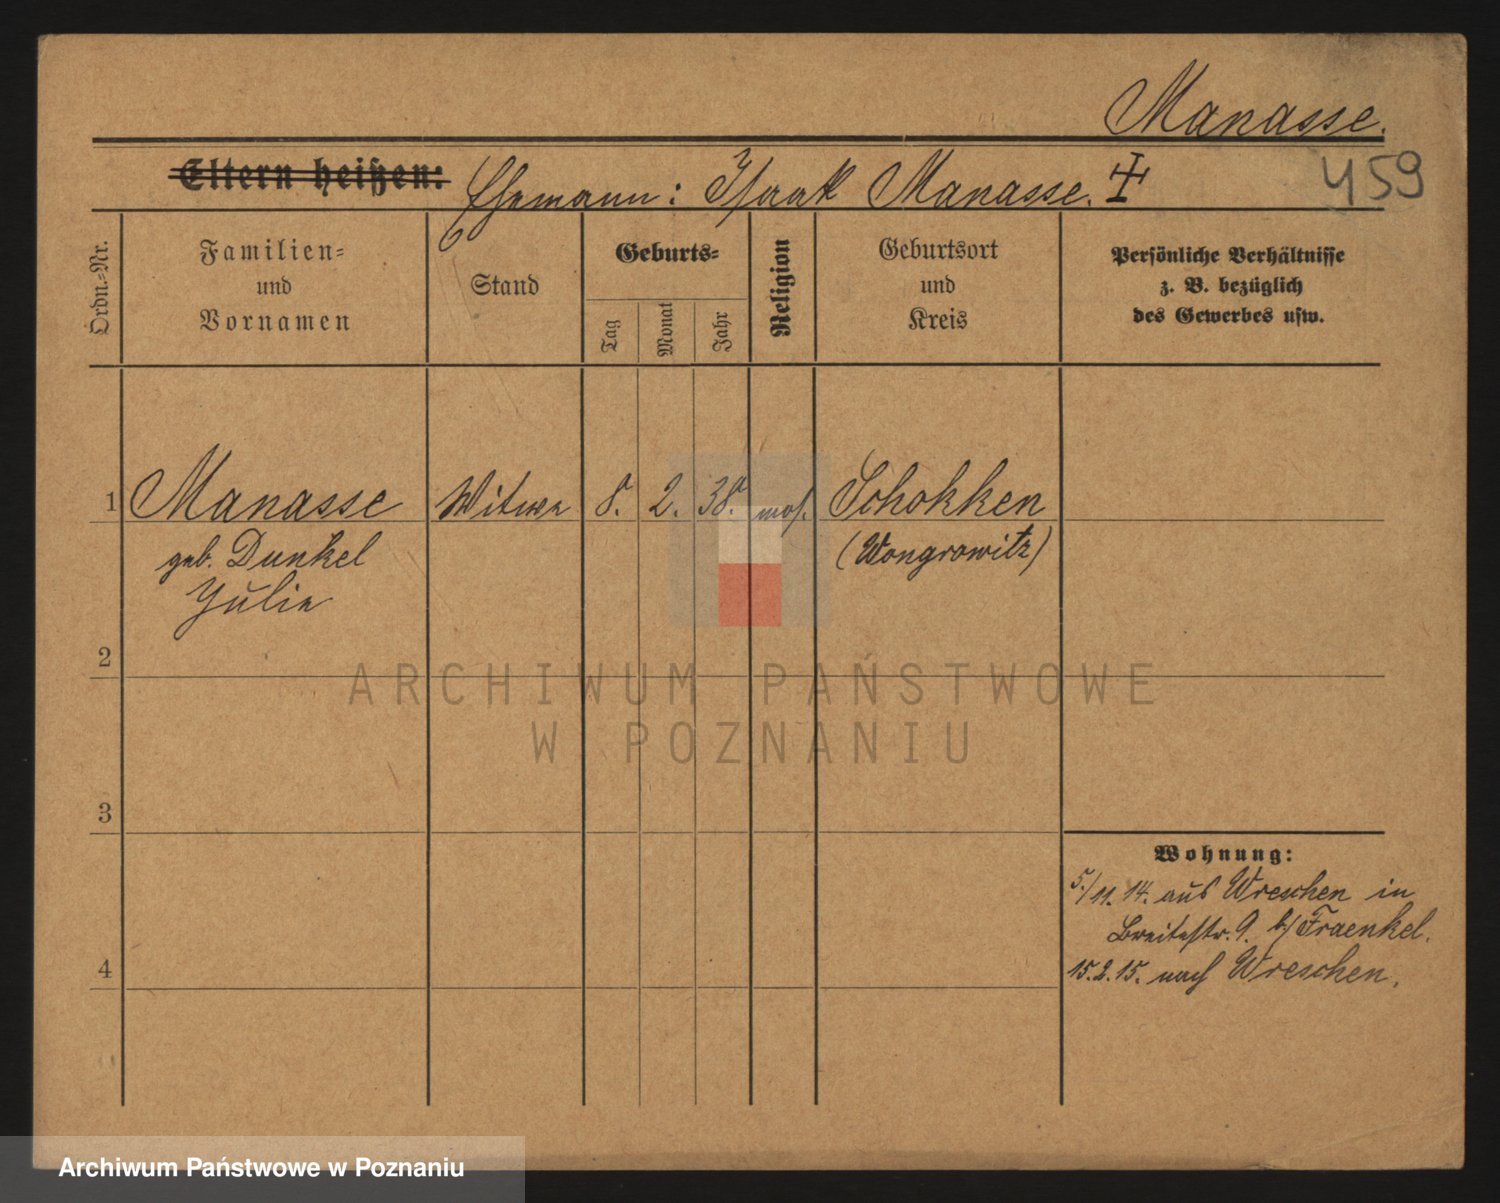 Manasse.
459
Eltern heißen: Ehemann: Isaak Manasse. ‡
Ordn.=Nr.
Familien=
und
Vornamen
Stand
Geburts=
Tag
Monat
Jahr
Religion
Geburtsort
und
Kreis
Persönliche Verhältnisse
z. B. bezüglich
des Gewerbes usw.
1 Manasse Witwe 8. 2. 38. mos. Schokken
geb. Dunkel (Wongrowitz)
Julie
2
ARCHIWUM PAŃSTWOWE
W POZNANIU
3
Wohnung:
5./11. 14. aus Wreschen in
Breitestr. 9. b/ Fraenkel.
4
15. 2. 15. nach Wreschen.
Archiwum Państwowe w Poznaniu